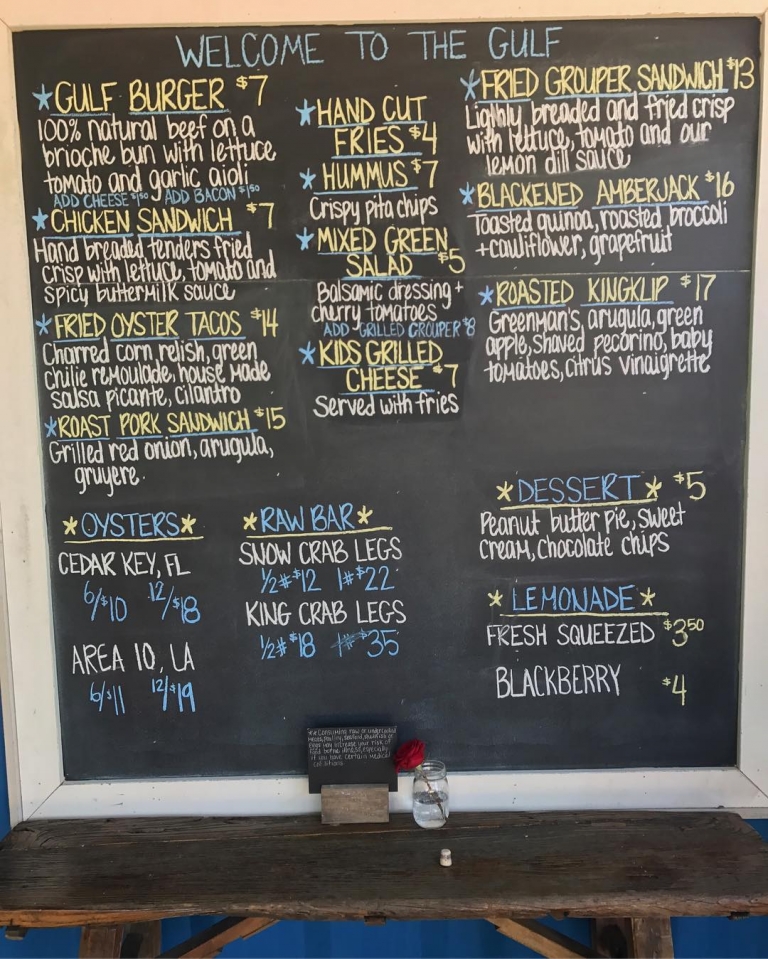 WELCOME TO THE GULF
*GULF BURGER $7
100% natural beef on a
brioche bun with lettuce
tomato and garlic aioli
ADD CHEESE $1.50 ADD BACON $1.50
*CHICKEN SANDWICH $7
Hand breaded tenders fried
crisp with lettuce, tomato and
spicy buttermilk sauce
*FRIED OYSTER TACOS $14
Charred corn relish, green
chilie remoulade, house made
salsa picante, cilantro
*ROAST PORK SANDWICH $15
Grilled red onion, arugula,
gruyere
*HAND CUT
FRIES $4
*HUMMUS $7
Crispy pita chips
*MIXED GREEN
SALAD $5
Balsamic dressing +
cherry tomatoes
ADD GRILLED GROUPER $8
*KIDS GRILLED
CHEESE $7
Served with fries
*FRIED GROUPER SANDWICH $13
Lightly breaded and fried crisp
with lettuce, tomato and our
lemon dill sauce
*BLACKENED AMBERJACK $16
Toasted quinoa, roasted broccoli
+cauliflower, grapefruit
*ROASTED KINGKLIP $17
Greenman's arugula, green
apple, shaved pecorino, baby
tomatoes, citrus vinaigrette
*OYSTERS*
CEDAR KEY, FL
6/$10 12/$18
AREA 10, LA
6/$11 12/$19
*RAW BAR*
SNOW CRAB LEGS
1/2# $12 1# $22
KING CRAB LEGS
1/2# $18 1# $35
*DESSERT* $5
Peanut butter pie, sweet
cream, chocolate chips
*LEMONADE*
FRESH SQUEEZED $3.50
BLACKBERRY $4
Consuming raw or undercooked
meats, poultry, seafood, shellfish or
eggs may increase your risk of
food borne illness, especially
if you have certain medical
conditions